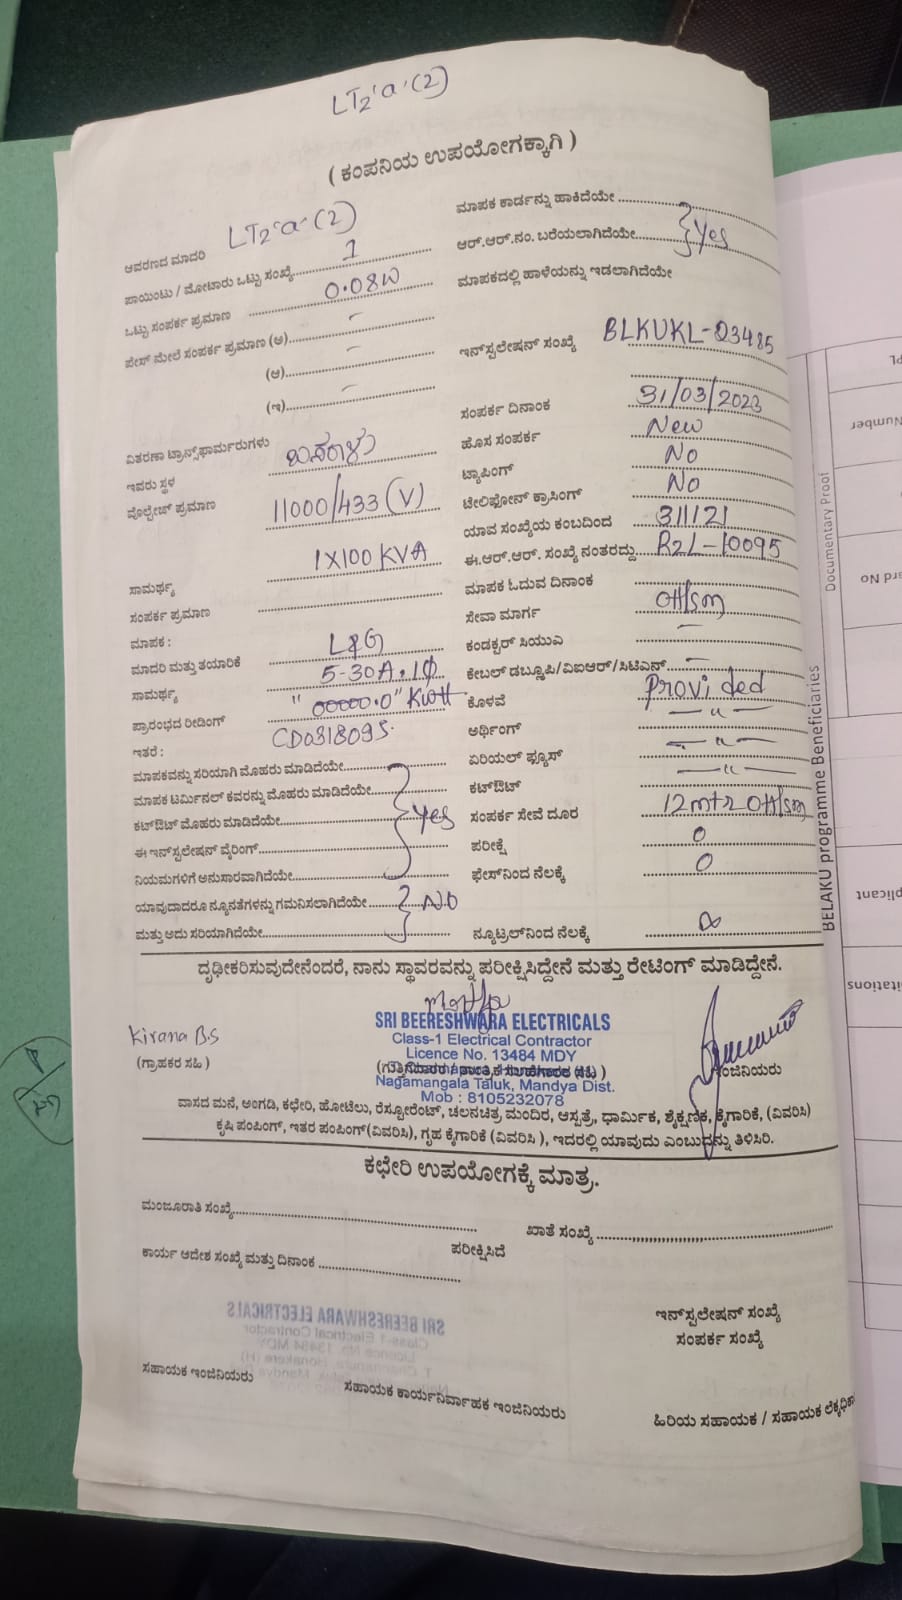 LT2'a'(2)
( ಕಂಪನಿಯ ಉಪಯೋಗಕ್ಕಾಗಿ )
ಆವರಣದ ಮಾದರಿ LT2'a'(2)
ಪಾಯಿಂಟು / ಮೋಟಾರು ಒಟ್ಟು ಸಂಖ್ಯೆ 1
ಒಟ್ಟು ಸಂಪರ್ಕ ಪ್ರಮಾಣ 0.08W
ಪೇಸ್ ಮೇಲೆ ಸಂಪರ್ಕ ಪ್ರಮಾಣ (ಅ) -
(ಆ) -
(ಇ) -
ವಿತರಣಾ ಟ್ರಾನ್ಸ್‌ಫಾರ್ಮರುಗಳು
ಇವರು ಸ್ಥಳ ಬಸರಾಳು
ವೊಲ್ಟೇಜ್ ಪ್ರಮಾಣ 11000/433 (V)
ಸಾಮರ್ಥ್ಯ 1X100 KVA
ಸಂಪರ್ಕ ಪ್ರಮಾಣ
ಮಾಪಕ :
ಮಾದರಿ ಮತ್ತು ತಯಾರಿಕೆ L&G
ಸಾಮರ್ಥ್ಯ 5-30A, 1Φ
ಪ್ರಾರಂಭದ ರೀಡಿಂಗ್ "00000.0" KWH
ಇತರೆ : CD0318095
ಮಾಪಕವನ್ನು ಸರಿಯಾಗಿ ಮೊಹರು ಮಾಡಿದೆಯೇ
ಮಾಪಕ ಟರ್ಮಿನಲ್ ಕವರನ್ನು ಮೊಹರು ಮಾಡಿದೆಯೇ
ಕಟ್‌ಔಟ್ ಮೊಹರು ಮಾಡಿದೆಯೇ Yes
ಈ ಇನ್‌ಸ್ಟಲೇಷನ್ ವೈರಿಂಗ್
ನಿಯಮಗಳಿಗೆ ಅನುಸಾರವಾಗಿದೆಯೇ
ಯಾವುದಾದರೂ ನ್ಯೂನತೆಗಳನ್ನು ಗಮನಿಸಲಾಗಿದೆಯೇ No
ಮತ್ತು ಅದು ಸರಿಯಾಗಿದೆಯೇ
ಮಾಪಕ ಕಾರ್ಡನ್ನು ಹಾಕಿದೆಯೇ
ಆರ್.ಆರ್.ನಂ. ಬರೆಯಲಾಗಿದೆಯೇ Yes
ಮಾಪಕದಲ್ಲಿ ಹಾಳೆಯನ್ನು ಇಡಲಾಗಿದೆಯೇ
ಇನ್‌ಸ್ಟಲೇಷನ್ ಸಂಖ್ಯೆ BLKUKL-03485
ಸಂಪರ್ಕ ದಿನಾಂಕ 31/03/2023
ಹೊಸ ಸಂಪರ್ಕ New
ಟ್ಯಾಪಿಂಗ್ No
ಟೇಲಿಫೋನ್ ಕ್ರಾಸಿಂಗ್ No
ಯಾವ ಸಂಖ್ಯೆಯ ಕಂಬದಿಂದ 311121
ಈ.ಆರ್.ಆರ್. ಸಂಖ್ಯೆ ನಂತರದ್ದು R2L-10095
ಮಾಪಕ ಓದುವ ದಿನಾಂಕ
ಸೇವಾ ಮಾರ್ಗ OH/sm
ಕಂಡಕ್ಟರ್ ಸಿಯುಎ -
ಕೇಬಲ್ ಡಬ್ಲೂಪಿ/ವಿಐಆರ್/ಸಿಟಿಎನ್ -
ಕೊಳವೆ Provided
ಅರ್ಥಿಂಗ್ —"—
ಏರಿಯಲ್ ಫ್ಯೂಸ್ —"—
ಕಟ್‌ಔಟ್ —"—
ಸಂಪರ್ಕ ಸೇವೆ ದೂರ 12mtr OH/sm
ಪರೀಕ್ಷೆ 0
ಫೇಸ್‌ನಿಂದ ನೆಲಕ್ಕೆ 0
ನ್ಯೂಟ್ರಲ್‌ನಿಂದ ನೆಲಕ್ಕೆ ∞
ದೃಢೀಕರಿಸುವುದೇನೆಂದರೆ, ನಾನು ಸ್ಥಾವರವನ್ನು ಪರೀಕ್ಷಿಸಿದ್ದೇನೆ ಮತ್ತು ರೇಟಿಂಗ್ ಮಾಡಿದ್ದೇನೆ.
Kirana B.S
(ಗ್ರಾಹಕರ ಸಹಿ)
SRI BEERESHWARA ELECTRICALS
Class-1 Electrical Contractor
Licence No. 13484 MDY
Nagamangala Taluk, Mandya Dist.
Mob : 8105232078
ಇಂಜಿನಿಯರು
ವಾಸದ ಮನೆ, ಅಂಗಡಿ, ಕಛೇರಿ, ಹೋಟೆಲು, ರೆಸ್ಟೋರೆಂಟ್, ಚಲನಚಿತ್ರ ಮಂದಿರ, ಆಸ್ಪತ್ರೆ, ಧಾರ್ಮಿಕ, ಶೈಕ್ಷಣಿಕ, ಕೈಗಾರಿಕೆ, (ವಿವರಿಸಿ)
ಕೃಷಿ ಪಂಪಿಂಗ್, ಇತರ ಪಂಪಿಂಗ್(ವಿವರಿಸಿ), ಗೃಹ ಕೈಗಾರಿಕೆ (ವಿವರಿಸಿ ), ಇದರಲ್ಲಿ ಯಾವುದು ಎಂಬುದನ್ನು ತಿಳಿಸಿರಿ.
ಕಛೇರಿ ಉಪಯೋಗಕ್ಕೆ ಮಾತ್ರ.
ಮಂಜೂರಾತಿ ಸಂಖ್ಯೆ
ಖಾತೆ ಸಂಖ್ಯೆ
ಪರೀಕ್ಷಿಸಿದೆ
ಕಾರ್ಯ ಆದೇಶ ಸಂಖ್ಯೆ ಮತ್ತು ದಿನಾಂಕ
ಇನ್‌ಸ್ಟಲೇಷನ್ ಸಂಖ್ಯೆ
ಸಂಪರ್ಕ ಸಂಖ್ಯೆ
ಸಹಾಯಕ ಇಂಜಿನಿಯರು
ಸಹಾಯಕ ಕಾರ್ಯನಿರ್ವಾಹಕ ಇಂಜಿನಿಯರು
ಹಿರಿಯ ಸಹಾಯಕ / ಸಹಾಯಕ
BELAKU programme Beneficiaries
Documentary Proof
Number